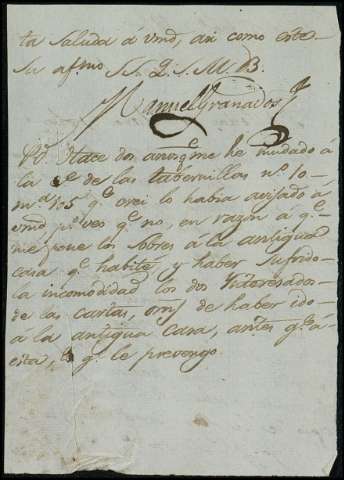 ta saluda á vmd, asi como este
su afmo S. S. Q. S. M. B.
Manuel Granados
PD. Hace dos años qe me he mudado á
la Ce de las tabernillas no. 10
qe creí lo habia avisado á
vmd, pr veo qe no, en razon á qe
me pone los sobres á la antigua
casa qe habité, y haber sufrido
la incomodidad los dos Interesados
de las cartas, de haber ido
á la antigua casa, antes qe á
esta, qe le prevengo.